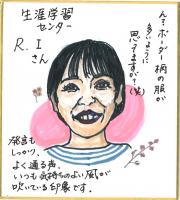 生涯学習
センター
R.I
さん
ん？ボーダー柄の服が
多いように
思ってますが？(笑)
発言も
しっかり、
よく通る声。
いつも気持ちのよい風が
吹いている印象です。